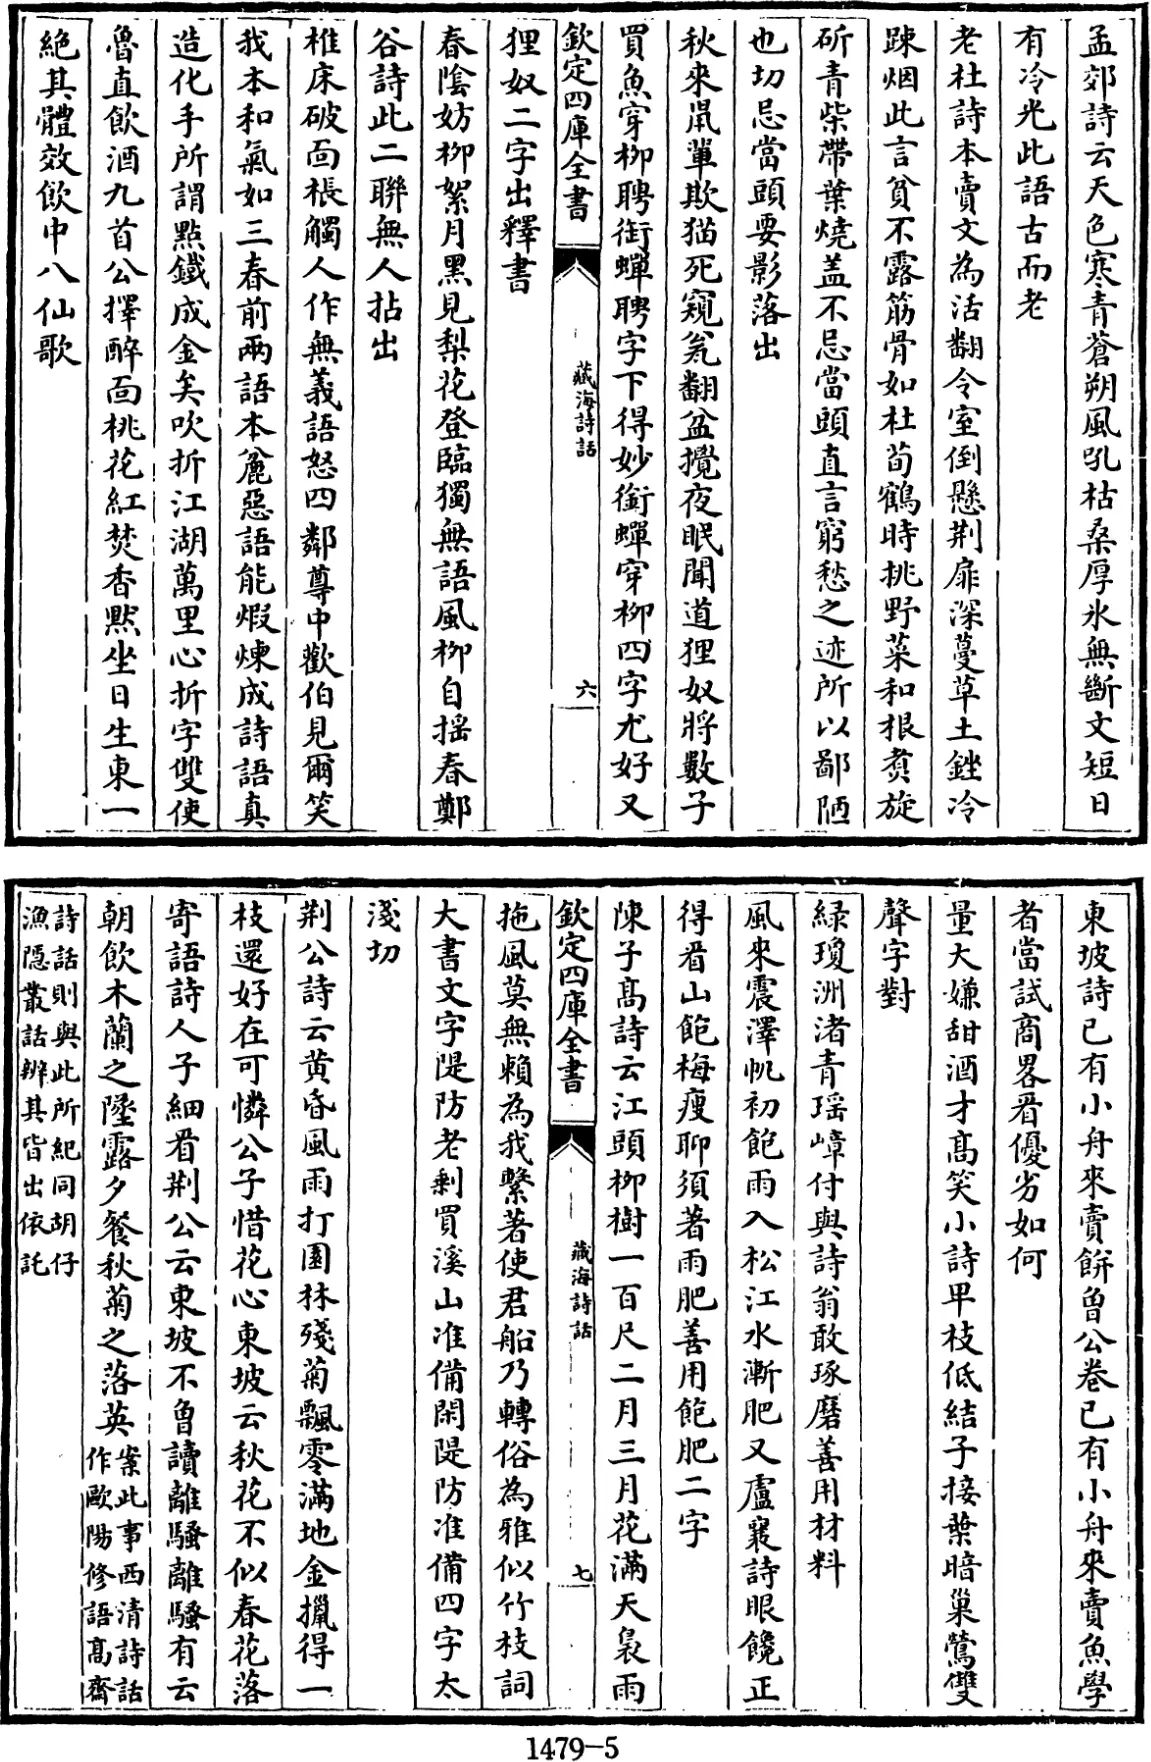 孟郊詩云天色寒青蒼朔風吼枯桑厚氷無斷文短日
有冷光此語古而老
老杜詩本賣文為活翻令室倒懸荆扉深蔓草土銼冷
踈烟此言貧不露筋骨如杜荀鶴時挑野菜和根煑旋
斫青柴帶葉燒盖不忌當頭直言窮愁之迹所以鄙陋
也切忌當頭要影落出
秋來鼠輩欺猫死窺瓮翻盆攪夜眠聞道狸奴將數子
買魚穿栁聘銜蟬聘字下得妙銜蟬穿栁四字尤好又
欽定四庫全書
藏海詩話
六
狸奴二字出釋書
春陰妨栁絮月黑見梨花登臨獨無語風栁自揺春鄭
谷詩此二聯無人拈出
椎床破面棖觸人作無義語怒四鄰尊中歡伯見爾笑
我本和氣如三春前兩語本麄惡語能煆煉成詩語真
造化手所謂點鐵成金矣吹折江湖萬里心折字雙使
魯直飲酒九首公擇醉面桃花紅焚香黙坐日生東一
絶其體效飲中八仙歌
東坡詩已有小舟來賣餅曾公卷已有小舟來賣魚學
者當試商畧看優劣如何
量大嫌甜酒才髙笑小詩平枝低結子接葉暗巢鶯雙
聲字對
緑瓊洲渚青瑶嶂付與詩翁敢琢磨善用材料
風來震澤帆初飽雨入松江水漸肥又盧襄詩眼饞正
得看山飽梅瘦聊須著雨肥善用飽肥二字
陳子髙詩云江頭栁樹一百尺二月三月花滿天裊雨
欽定四庫全書
藏海詩話
七
拖風莫無賴為我繫著使君船乃轉俗為雅似竹枝詞
大書文字隄防老剩買溪山准備閑隄防准備四字太
淺切
荆公詩云黄昏風雨打園林殘菊飄零滿地金攧得一
枝還好在可憐公子惜花心東坡云秋花不似春花落
寄語詩人子細看荆公云東坡不曾讀離騷離騷有云
朝飲木蘭之墜露夕餐秋菊之落英案此事西清詩話
作歐陽修語髙齋
詩話則與此所紀同胡仔
漁隠叢話辨其皆出依託
1479-5